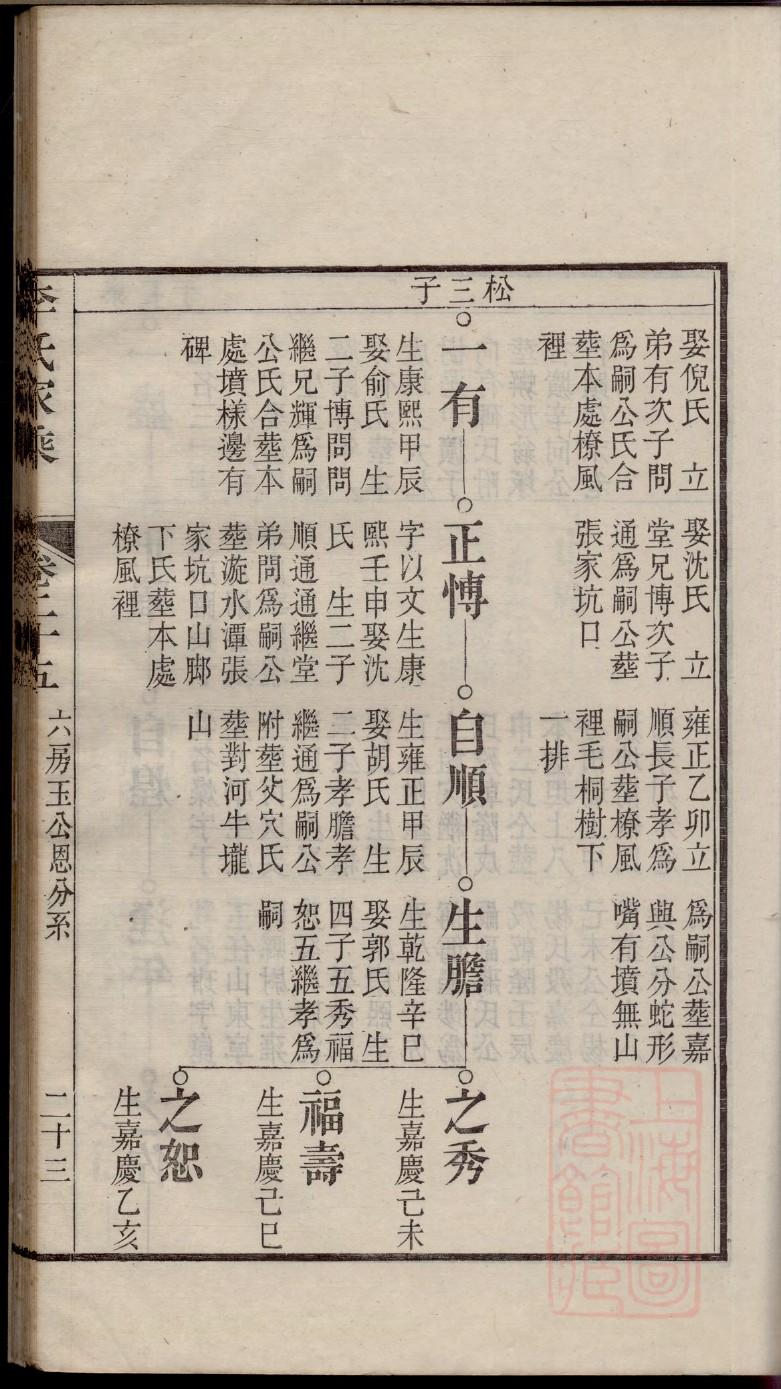 松三子
娶倪氏　立
弟有次子問
爲嗣公氏合
塟本處橑風
裡
娶沈氏　立
堂兄博次子
通爲嗣公塟
張家坑口
雍正乙卯立
順長子孝爲
嗣公塟橑風
裡毛桐樹下
一排
爲嗣公塟嘉
與公分蛇形
嘴有墳無山
一有
生康熙甲辰
娶俞氏　生
二子博問問
繼兄輝爲嗣
公氏合塟本
處墳樣邊有
碑
正愽
字以文生康
熙壬申娶沈
氏　生二子
順通通繼堂
弟問爲嗣公
塟漩水潭張
家坑口山脚
下氏塟本處
橑風裡
自順
生雍正甲辰
娶胡氏　生
二子孝膽孝
繼通爲嗣公
附塟父穴氏
塟對河牛壠
山
生膽
生乾隆辛巳
娶郭氏　生
四子五秀福
恕五繼孝爲
嗣
之秀
生嘉慶己未
福壽
生嘉慶己巳
之恕
生嘉慶乙亥
李氏家乘
卷二十五
六房玉公恩分系
二十三
上海圖書館藏